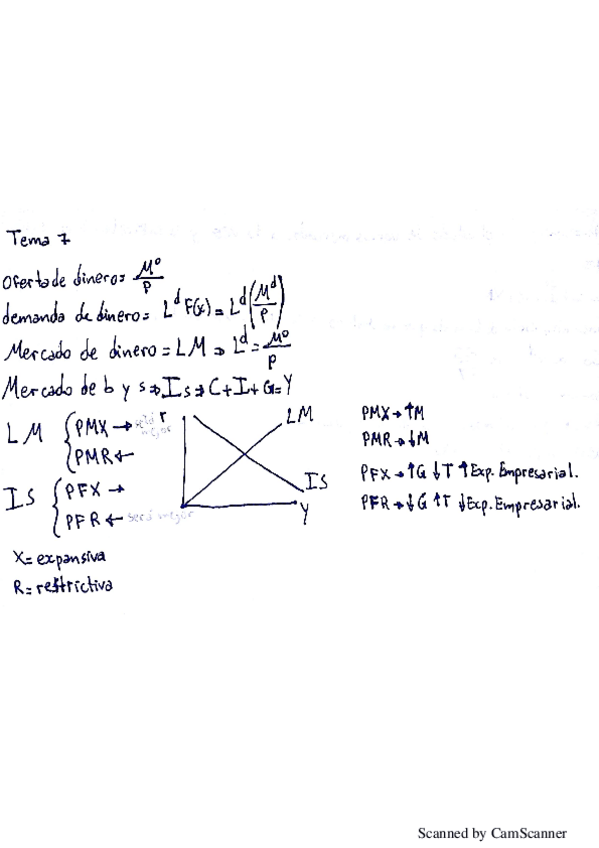 Tema 7
Oferta de dinero = M⁰/P
demanda de dinero = L^d F(x) = L^d (M^d/P)
Mercado de dinero = LM ⇒ L^d = M⁰/P
Mercado de b y s ⇒ Is ⇒ C+I+G=Y
LM { PMX → será mejor
PMR ←
IS { PFX →
PFR ← será mejor
r
LM
IS
Y
PMX → ↑M
PMR → ↓M
PFX → ↑G ↓T ↑Exp. Empresarial.
PFR → ↓G ↑T ↓Exp. Empresarial.
X = expansiva
R = restrictiva
Scanned by CamScanner